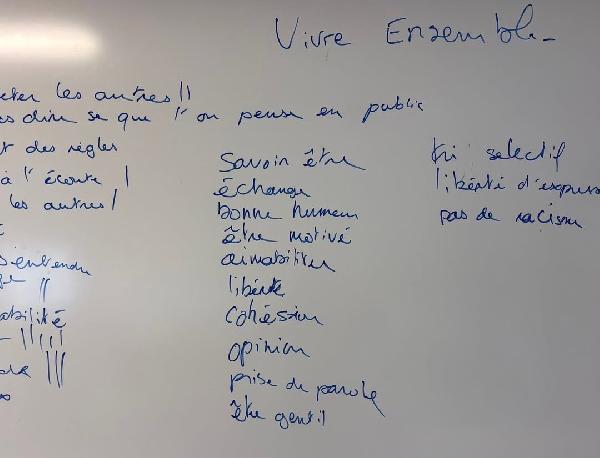 Vivre Ensemble
les autres !!
dire se que l'on pense en public
des règles
à l'écoute !
les autres !
savoir être
échange
bonne humeur
être motivé
aimabiliter
liberté
cohésion
opinion
prise de parole
être gentil
tri selectif
libérté d'express
pas de racisme